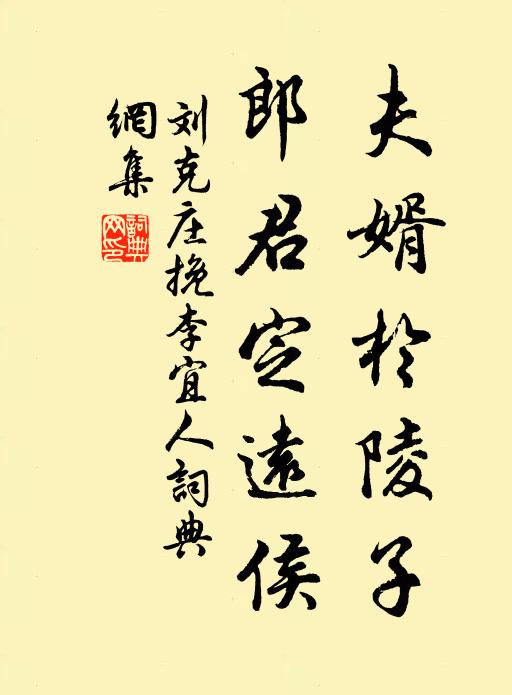 夫婿於陵子
郎君定遠侯
刘克庄挽李宜人詞典
網集
詞典
网印